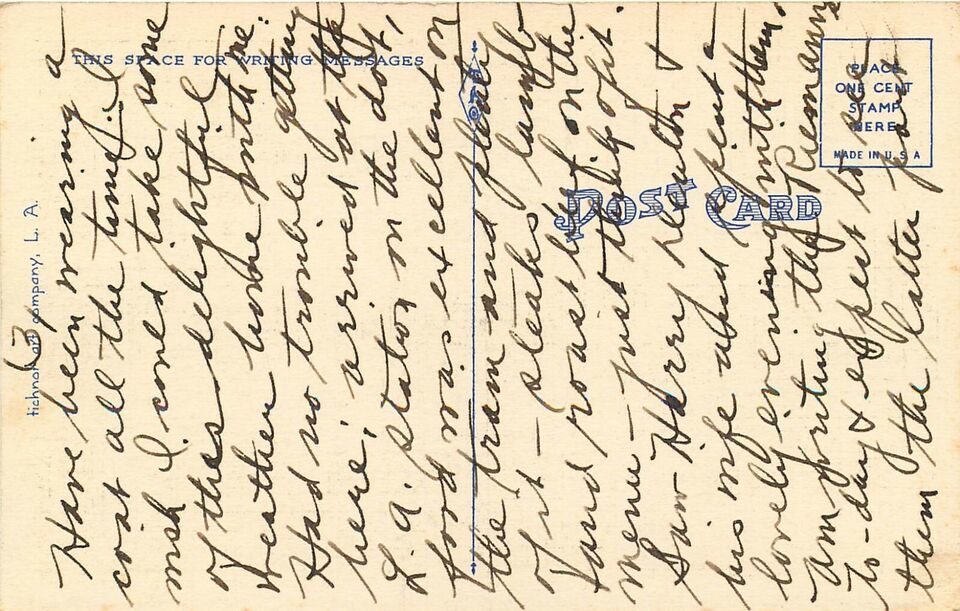 THIS SPACE FOR WRITING MESSAGES
PLACE
ONE CENT
STAMP
HERE
MADE IN U.S.A
POST CARD
tichnor art company, L. A.
3,
Have been wearing a
coat all the time. I
wish I could take some
of this delightful
weather home with me.
Had no trouble getting
here, arrived at the
L.A. station on the dot,
food was excellent on
the train and plenty
of it - steaks, lamb
and roast beef on the
menu - just think of it
Saw Harry Heaton &
his wife and spent a
lovely evening with them.
am writing the Riemanns
to-day & expect to see
them the latter part